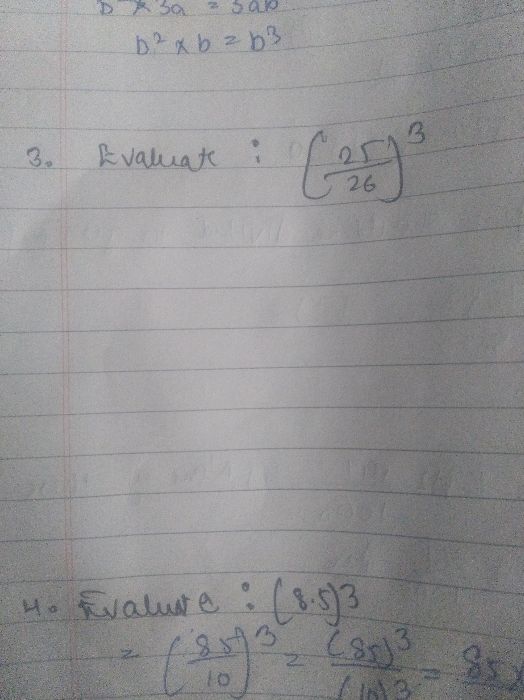 b² × 3a = 3ab
b² × b = b³
3. Evaluate : (25/26)³
4. Evaluate : (8.5)³
= (85/10)³ = (85)³/(10)³ = 85